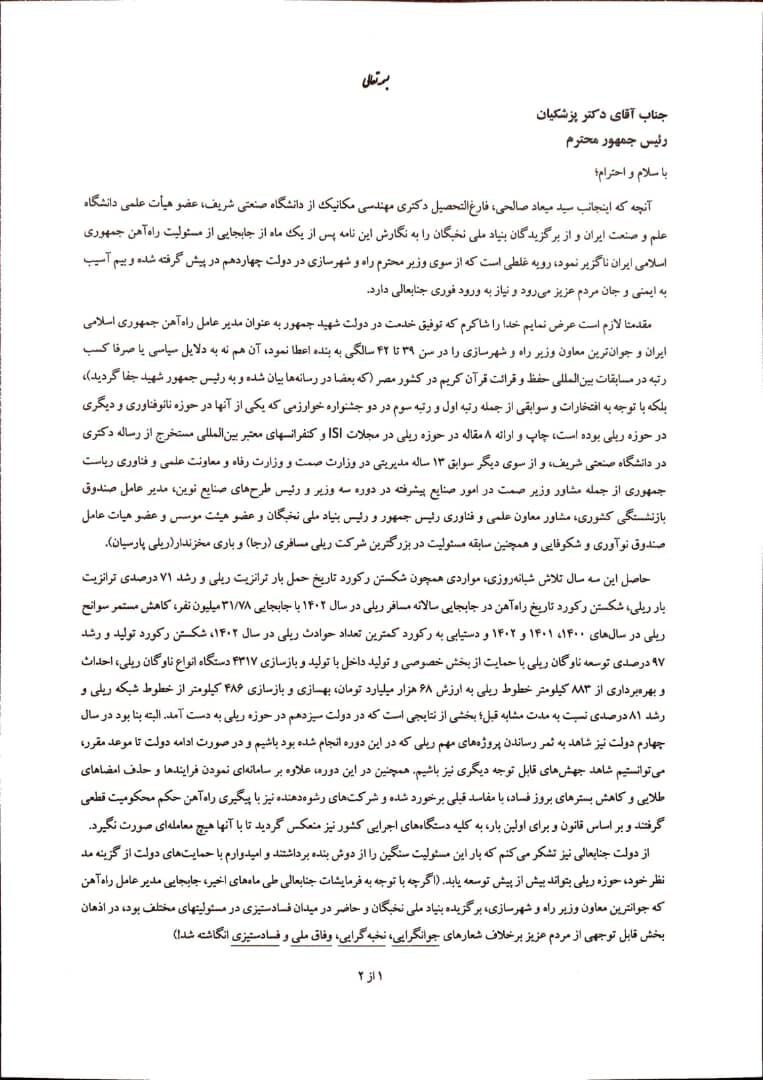 بسمه تعالی
جناب آقای دکتر پزشکیان
رئیس جمهور محترم
با سلام و احترام؛
آنچه که اینجانب سید میعاد صالحی، فارغ‌التحصیل دکتری مهندسی مکانیک از دانشگاه صنعتی شریف، عضو هیأت علمی دانشگاه
علم و صنعت ایران و از برگزیدگان بنیاد ملی نخبگان را به نگارش این نامه پس از یک ماه از جابجایی از مسئولیت راه‌آهن جمهوری
اسلامی ایران ناگزیر نمود، رویه غلطی است که از سوی وزیر محترم راه و شهرسازی در دولت چهاردهم در پیش گرفته شده و بیم آسیب
به ایمنی و جان مردم عزیز می‌رود و نیاز به ورود فوری جنابعالی دارد.
مقدمتا لازم است عرض نمایم خدا را شاکرم که توفیق خدمت در دولت شهید جمهور به عنوان مدیر عامل راه‌آهن جمهوری اسلامی
ایران و جوان‌ترین معاون وزیر راه و شهرسازی را در سن ۳۹ تا ۴۲ سالگی به بنده اعطا نمود، آن هم نه به دلایل سیاسی یا صرفا کسب
رتبه در مسابقات بین‌المللی حفظ و قرائت قرآن کریم در کشور مصر (که بعضا در رسانه‌ها بیان شده و به رئیس جمهور شهید جفا گردید)،
بلکه با توجه به افتخارات و سوابقی از جمله رتبه اول و رتبه سوم در دو جشنواره خوارزمی که یکی از آنها در حوزه نانوفناوری و دیگری
در حوزه ریلی بوده است، چاپ و ارائه ۸ مقاله در حوزه ریلی در مجلات ISI و کنفرانسهای معتبر بین‌المللی مستخرج از رساله دکتری
در دانشگاه صنعتی شریف، و از سوی دیگر سوابق ۱۳ ساله مدیریتی در وزارت صمت و وزارت رفاه و معاونت علمی و فناوری ریاست
جمهوری از جمله مشاور وزیر صمت در امور صنایع پیشرفته در دوره سه وزیر و رئیس طرح‌های صنایع نوین، مدیر عامل صندوق
بازنشستگی کشوری، مشاور معاون علمی و فناوری رئیس جمهور و رئیس بنیاد ملی نخبگان و عضو هیئت موسس و عضو هیات عامل
صندوق نوآوری و شکوفایی و همچنین سابقه مسئولیت در بزرگترین شرکت ریلی مسافری (رجا) و باری مخزندار(ریلی پارسیان).
حاصل این سه سال تلاش شبانه‌روزی، مواردی همچون شکستن رکورد تاریخ حمل بار ترانزیت ریلی و رشد ۷۱ درصدی ترانزیت
بار ریلی، شکستن رکورد تاریخ راه‌آهن در جابجایی سالانه مسافر ریلی در سال ۱۴۰۲ با جابجایی ۳۱/۷۸ میلیون نفر، کاهش مستمر سوانح
ریلی در سال‌های ۱۴۰۰، ۱۴۰۱ و ۱۴۰۲ و دستیابی به رکورد کمترین تعداد حوادث ریلی در سال ۱۴۰۲، شکستن رکورد تولید و رشد
۹۷ درصدی توسعه ناوگان ریلی با حمایت از بخش خصوصی و تولید داخل با تولید و بازسازی ۴۳۱۷ دستگاه انواع ناوگان ریلی، احداث
و بهره‌برداری از ۸۸۳ کیلومتر خطوط ریلی به ارزش ۶۸ هزار میلیارد تومان، بهسازی و بازسازی ۴۸۶ کیلومتر از خطوط شبکه ریلی و
رشد ۸۱ درصدی نسبت به مدت مشابه قبل؛ بخشی از نتایجی است که در دولت سیزدهم در حوزه ریلی به دست آمد. البته بنا بود در سال
چهارم دولت نیز شاهد به ثمر رساندن پروژه‌های مهم ریلی که در این دوره انجام شده بود باشیم و در صورت ادامه دولت تا موعد مقرر،
می‌توانستیم شاهد جهش‌های قابل توجه دیگری نیز باشیم. همچنین در این دوره، علاوه بر سامانه‌ای نمودن فرایندها و حذف امضاهای
طلایی و کاهش بسترهای بروز فساد، با مفاسد قبلی برخورد شده و شرکت‌های رشوه‌دهنده نیز با پیگیری راه‌آهن حکم محکومیت قطعی
گرفتند و بر اساس قانون و برای اولین بار، به کلیه دستگاه‌های اجرایی کشور نیز منعکس گردید تا با آنها هیچ معامله‌ای صورت نگیرد.
از دولت جنابعالی نیز تشکر می‌کنم که بار این مسئولیت سنگین را از دوش بنده برداشتند و امیدوارم با حمایت‌های دولت از گزینه مد
نظر خود، حوزه ریلی بتواند بیش از پیش توسعه یابد. (اگرچه با توجه به فرمایشات جنابعالی طی ماه‌های اخیر، جابجایی مدیر عامل راه‌آهن
که جوانترین معاون وزیر راه و شهرسازی، برگزیده بنیاد ملی نخبگان و حاضر در میدان فسادستیزی در مسئولیتهای مختلف بود، در اذهان
بخش قابل توجهی از مردم عزیز برخلاف شعارهای جوانگرایی، نخبه‌گرایی، وفاق ملی و فسادستیزی انگاشته شد!)
۱ از ۲